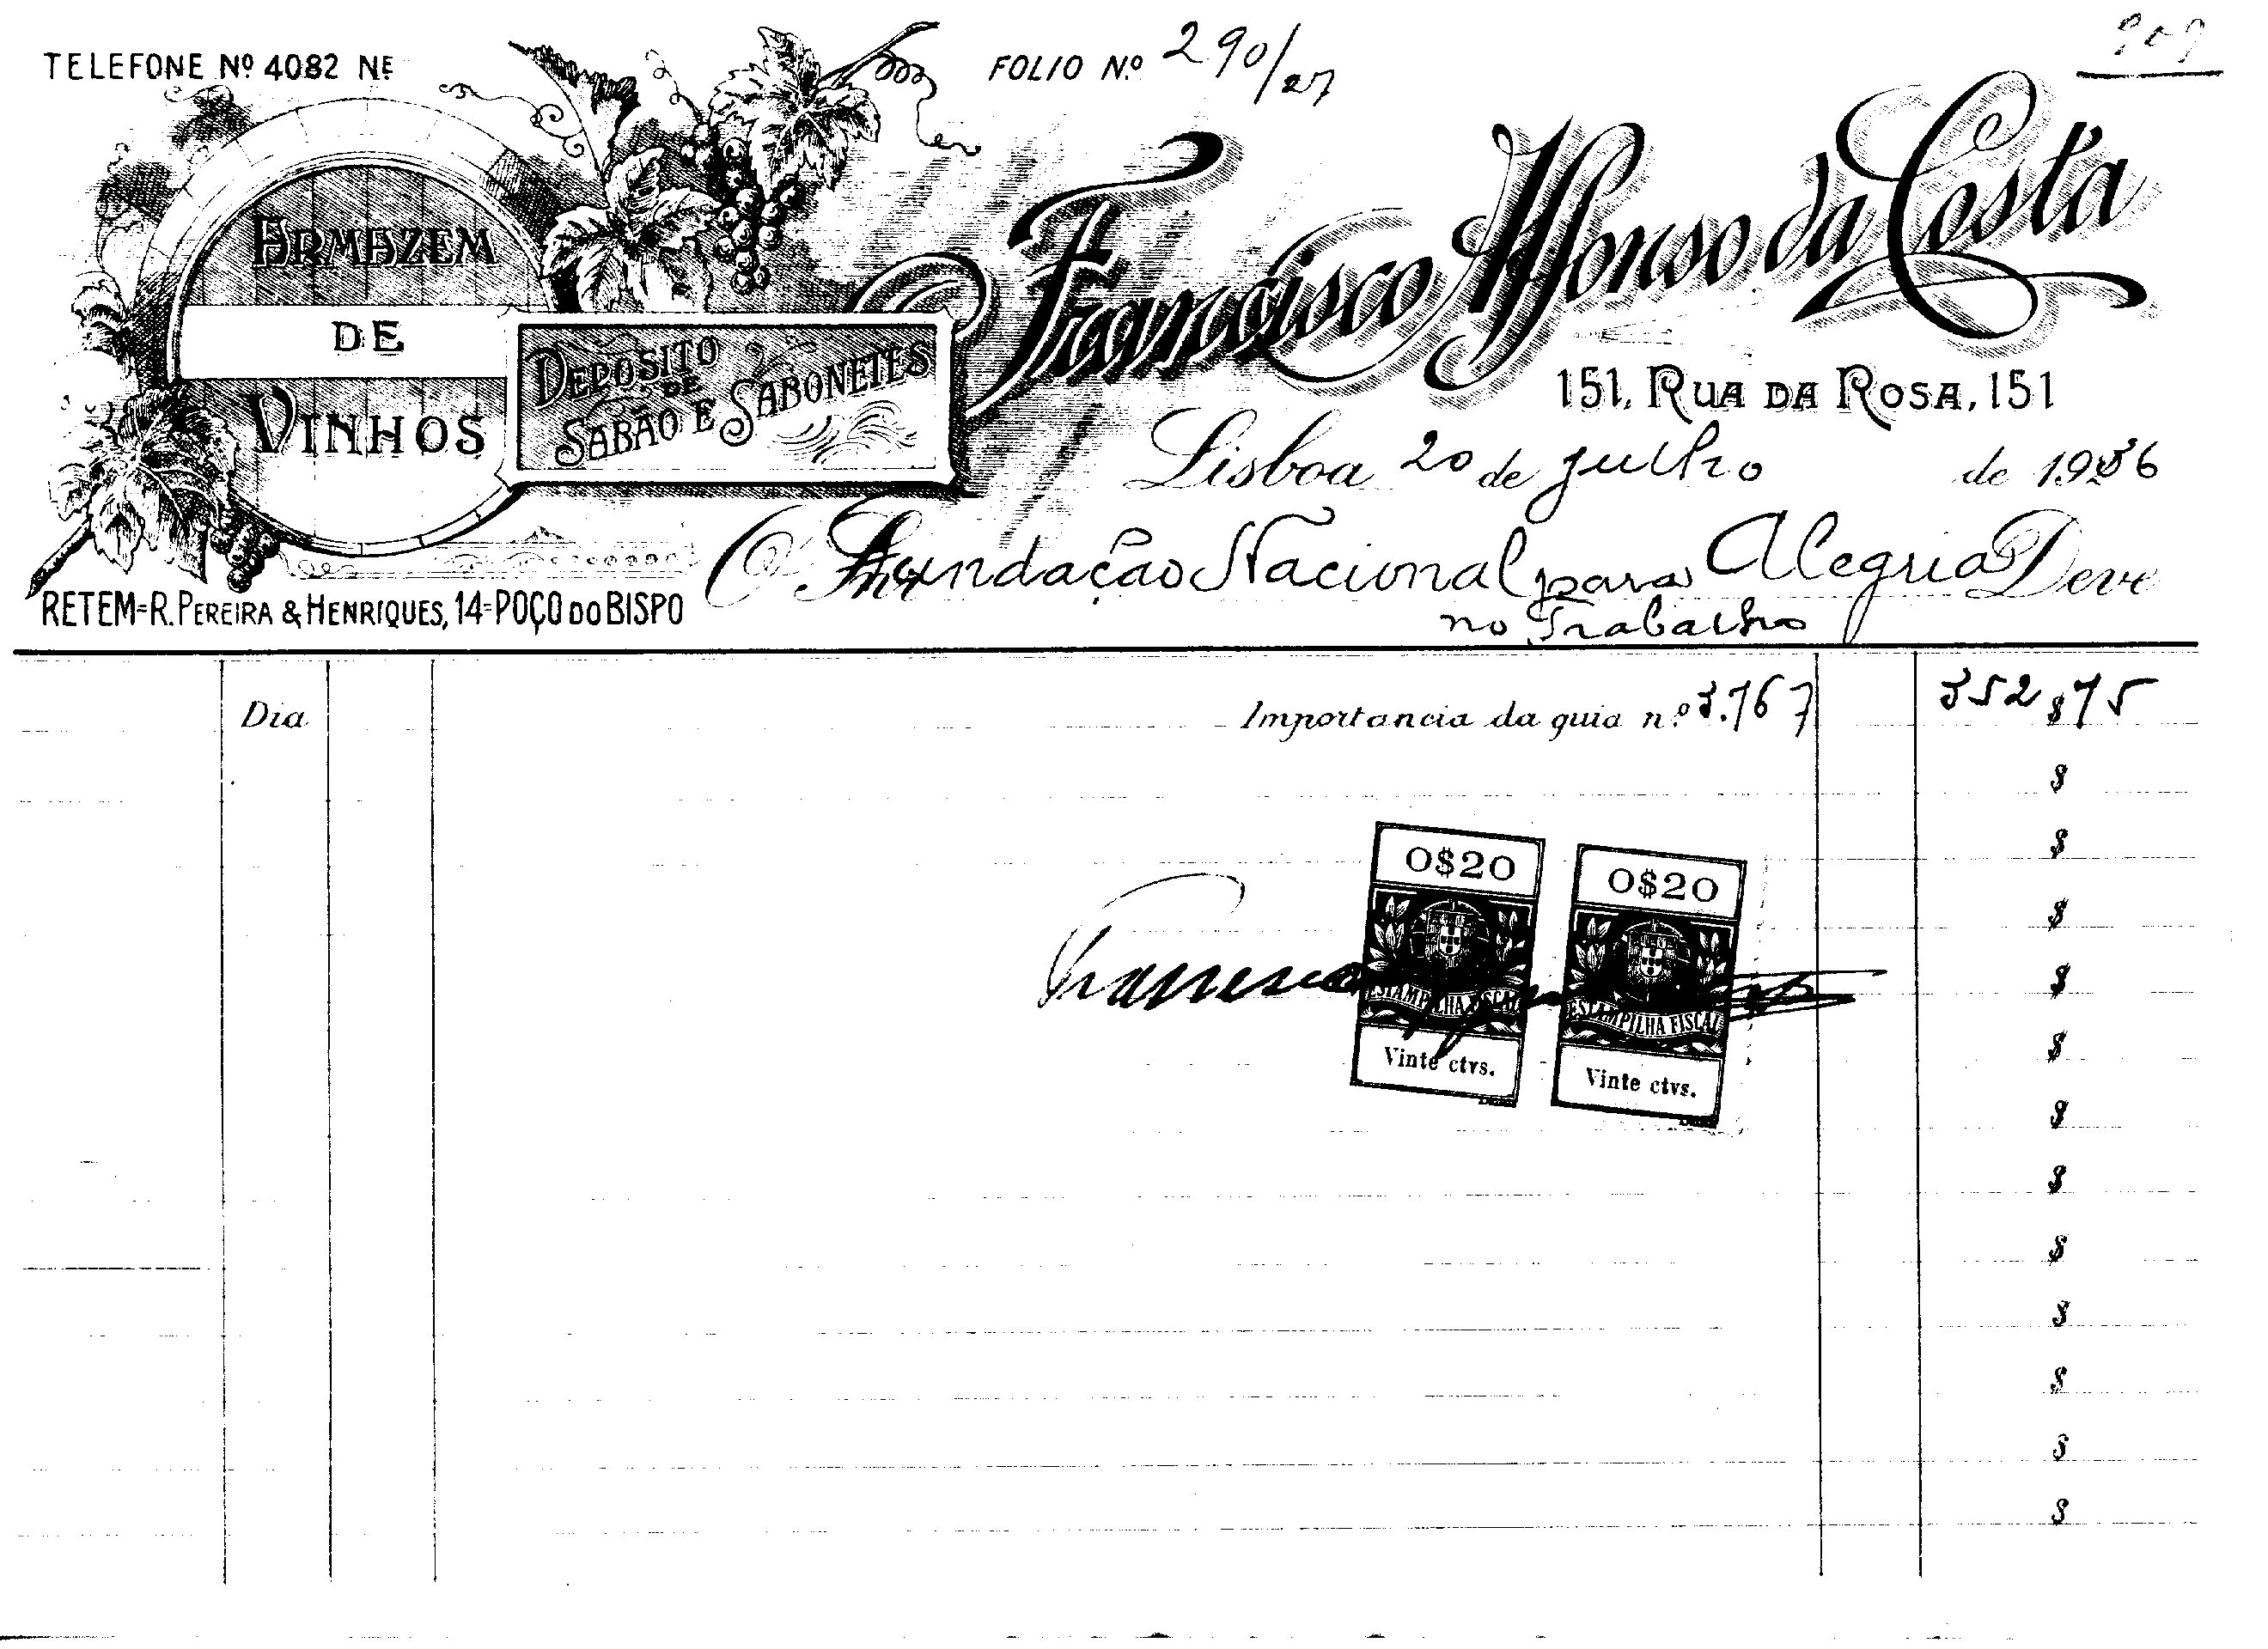 TELEFONE Nº 4082 NE
FOLIO N.º 290/27
ARMAZEM
DE
VINHOS
DEPOSITO
DE
SABÃO E SABONETES
Francisco Affonso da Costa
151, RUA DA ROSA, 151
Lisboa 20 de julho de 1936
Fundação Nacional para Alegria Deve
no Trabalho
RETEM=R. PEREIRA & HENRIQUES, 14=POÇO DO BISPO
Dia
Importancia da guia n.º 3.767 352$75
$
$
$
$
$
$
$
$
$
$
$
$
0$20
ESTAMPILHA FISCAL
Vinte ctvs.
0$20
ESTAMPILHA FISCAL
Vinte ctvs.